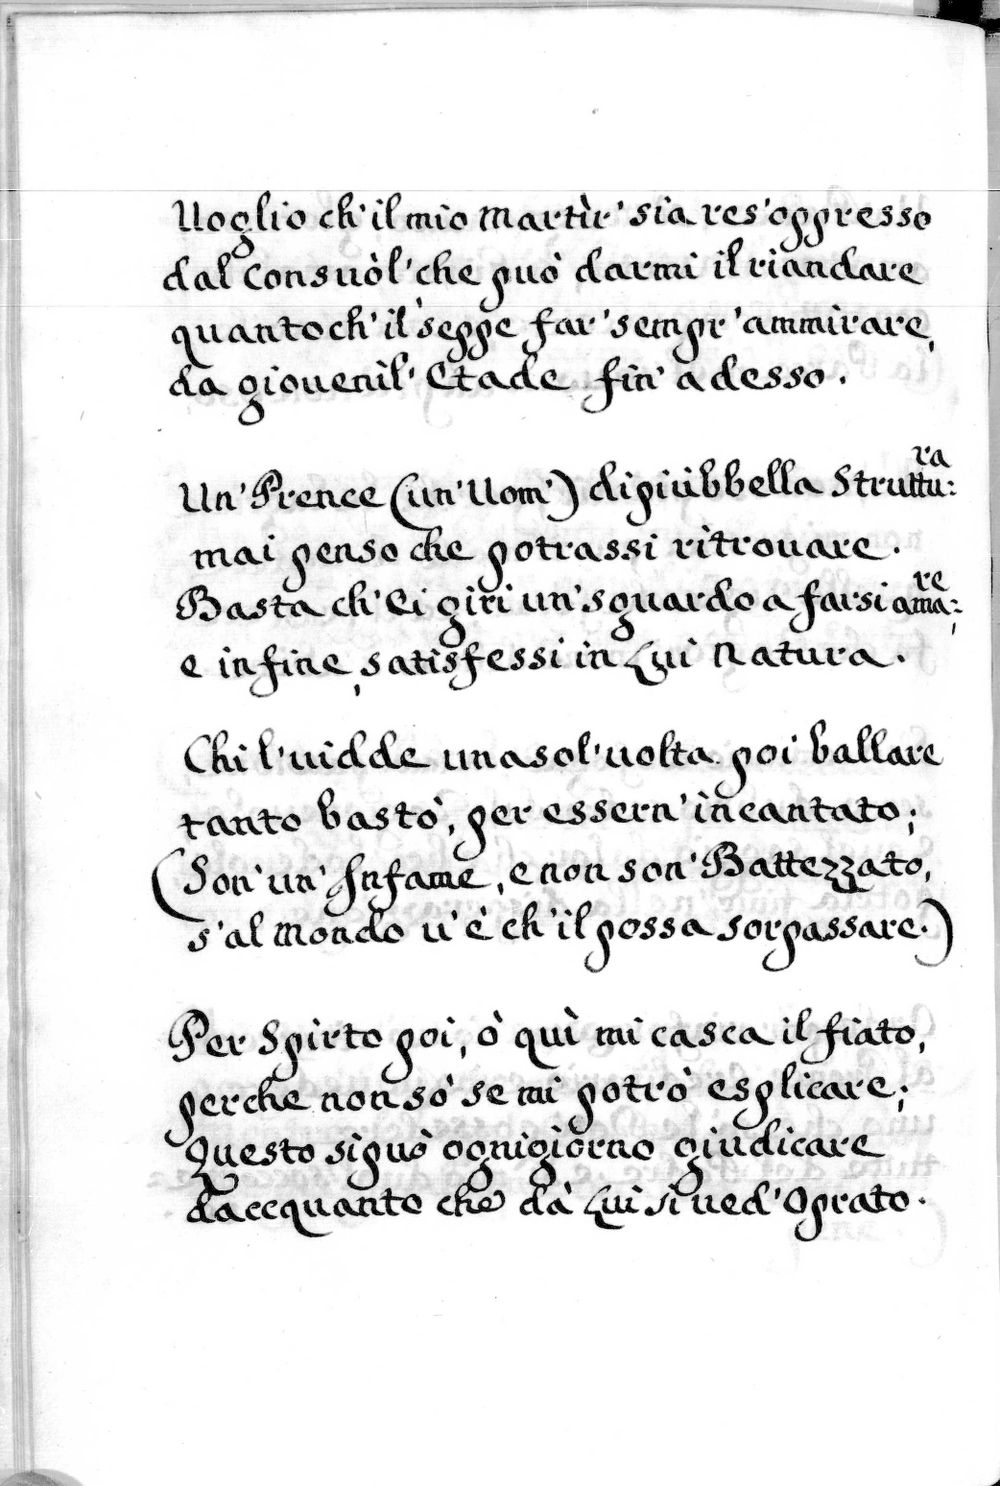 Uoglio ch'il mio Martìr' sia res'oppresso
dal Consuòl' che può darmi il riandare
quanto ch'il seppe far' sempr' ammirare,
da giouenil' Etade fin' adesso.

Un' Prence (un' Uom') di piùbbella Struttu:ra
mai penso che potrassi ritrouare.
Basta ch'Ei giri un' sguardo a farsi ama:re,
e in fine, satisfessi in Lui Natura.

Chi l'uidde una sol' uolta poi ballare
tanto bastò, per essern' incantato;
(Son' un' Infame, e non son' Battezzato,
s'al Mondo u'è ch'il possa sorpassare.)

Per Spirto poi, ò quì mi casca il fiato,
perche non sò se mi potrò esplicare;
Questo si può ogni giorno giudicare
daccquanto che dà Lui si ued' Oprato.